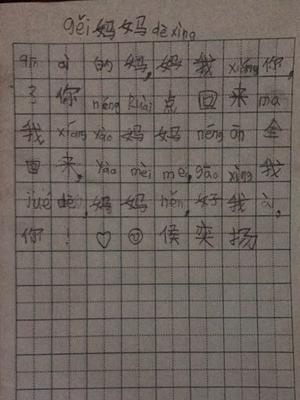 gěi妈妈dè xìng
qīn ài 的妈妈,妈我xiǎng你,
?你néng kuài点回来ma
我xiǎng yào妈妈néng ān全
回来,yào mèi mei,gāo xìng我
jué dé,妈妈hěn,好我ài,
你!♡☺侯奕扬